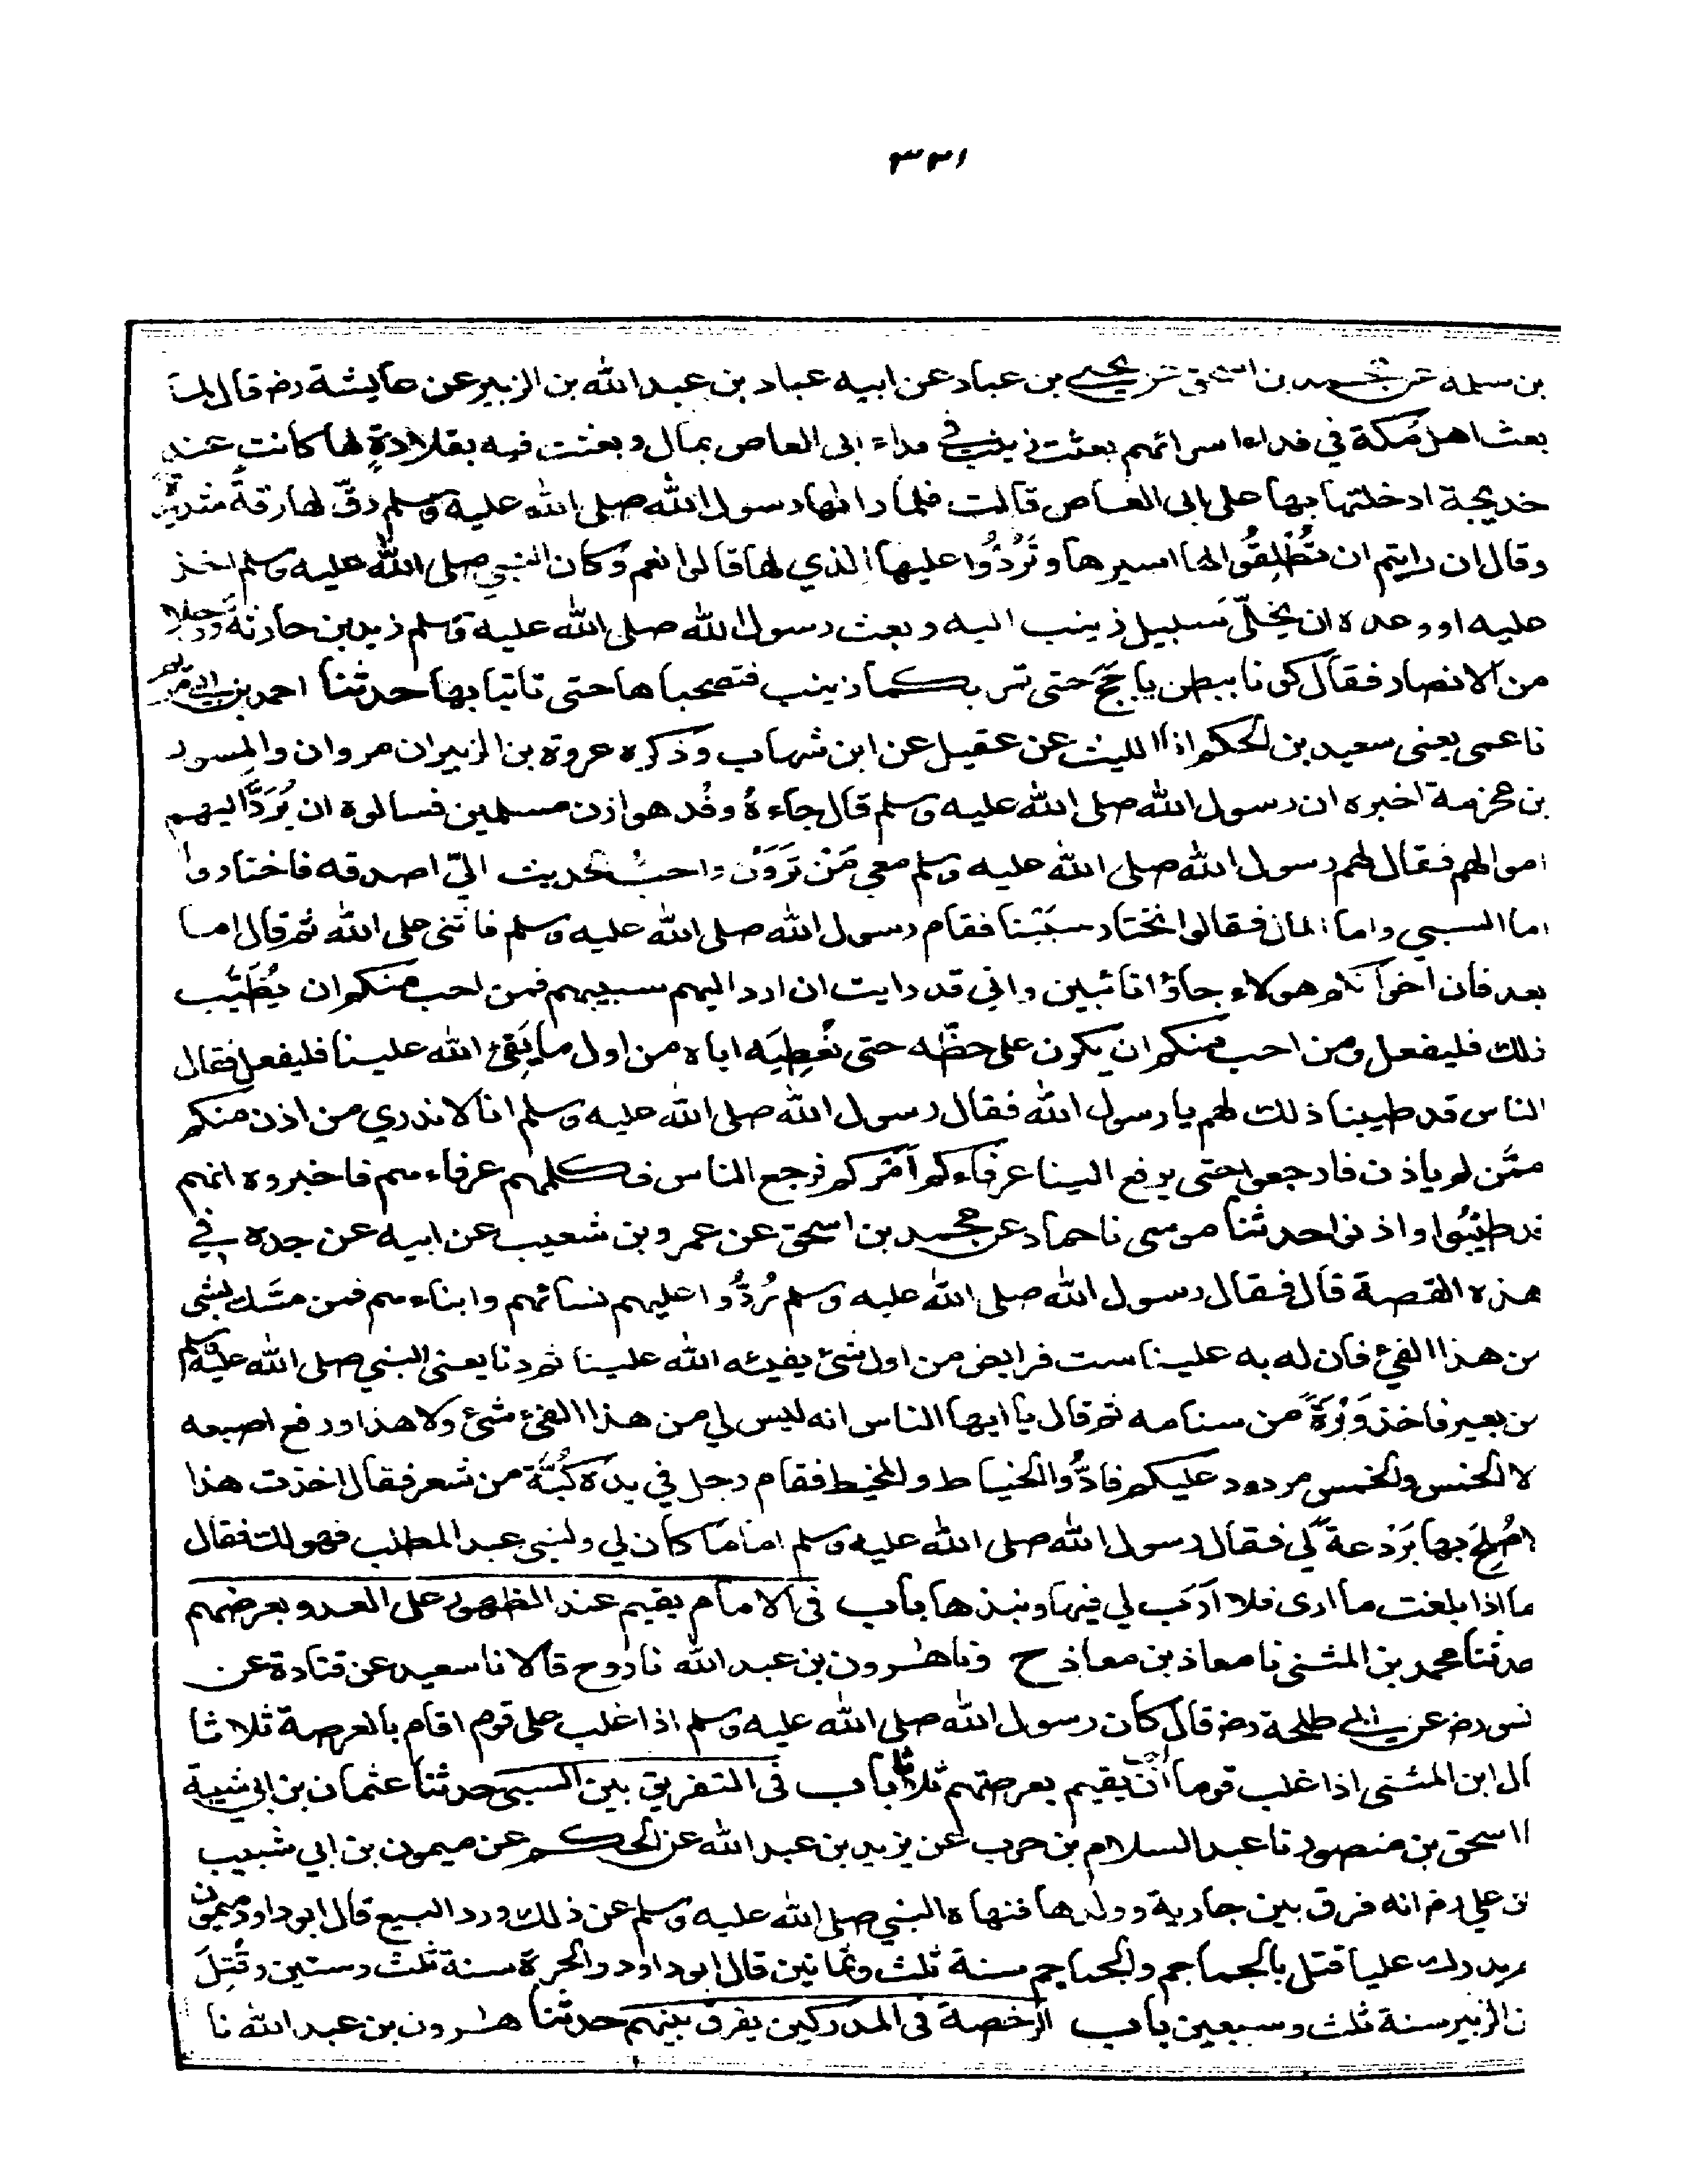 ٣٣١
بن سلمة عن محمد بن اسحق عن يحيى بن عباد عن ابيه عباد بن عبد الله بن الزبير عن عايشة رضـ قال لما
بعث اهل مكة في فداء اسرائهم بعثت زينب في فداء ابي العاص بمال وبعثت فيه بقلادةٍ لها كانت عند
خديجة ادخلتها بها على ابي العاص قالت فلما راها رسول الله صلى الله عليه وسلم رقّ لها رقةً شديدة
وقال ان رايتم ان تُطْلِقُوا لها اسيرها وتَرُدُّوا عليها الذي لها قالوا نعم وكان النبي صلى الله عليه وسلم اخذ
عليه او وعده ان يخلّي سبيل زينب اليه وبعث رسول الله صلى الله عليه وسلم زيد بن حارثة ورجلا
من الانصار فقال كونا ببطن ياجج حتى تمر بكما زينب فتصحباها حتى تاتيا بها حدثنا احمد بن ابي مريم
نا عمى يعنى سعيد بن الحكم انا الليث عن عقيل عن ابن شهاب وذكره عروة بن الزبير ان مروان والمِسور
بن مخرمة اخبره ان رسول الله صلى الله عليه وسلم قال جاءهُ وفْد هوازن مسلمين فسالوه ان يُرَدَّ اليهم
اموالهم فقال لهم رسول الله صلى الله عليه وسلم معي مَنْ تَرَوْن واحبُّ الحديث اليّ اصدقه فاختاروا
اما السبي واما المال فقالوا نختار سَبْيَنا فقام رسول الله صلى الله عليه وسلم فاثنى على الله ثم قال اما
بعد فان اخوانكم هولاء جاؤا تائبين واني قد رايت ان ارد اليهم سبيهم فمن احب منكم ان يُطَيِّب
ذلك فليفعل ومن احب منكم ان يكون على حظّه حتى نُعْطِيَه اياه من اول ما يَفئ الله علينا فليفعل فقال
الناس قد طيبنا ذلك لهم يا رسول الله فقال رسول الله صلى الله عليه وسلم انا لا ندري من اذن منكم
ممَّن لم ياذن فارجعوا حتى يرفع الينا عرفاءكم امركم فرجع الناس فكلمهم عرفاءهم فاخبروه انهم
قد طيَّبُوا واذنوا حدثنا موسى نا حماد عن محمد بن اسحق عن عمرو بن شعيب عن ابيه عن جده في
هذه القصة قال فقال رسول الله صلى الله عليه وسلم رُدُّوا عليهم نسائهم وابناءهم فمن مسَّك بشى
من هذا الفئ فان له به علينا ست فرايض من اول شئ يفيئه الله علينا ثم دنا يعنى النبي صلى الله عليه وسلم
من بعير فاخذ وَبْرَةً من سنامه ثم قال يا ايها الناس انه ليس لي من هذا الفئ شئ ولا هذا ورفع اصبعه
لا الخمس والخمس مردود عليكم فادُّوا الخياط والمخيط فقام رجل في يده كُبَّة من شعر فقال اخذت هذا
اصْلِحَ بها بَرْدعة لي فقال رسول الله صلى الله عليه وسلم اما ما كان لي ولبني عبد المطلب فهو لك فقال
ما اذا بلغت ما ارى فلا اَرَب لي فيها ونبذها باب فى الامام يقيم عند الظهور على العدو بعرضهم
حدثنا محمد بن المثنى نا معاذ بن معاذ ح ونا هٰرون بن عبد الله نا روح قالا نا سعيد عن قتادة عن
نس رضـ عن ابي طلحة رضـ قال كان رسول الله صلى الله عليه وسلم اذا غلب على قوم اقام بالعرصة ثلاثا
ال ابن المثنى اذا غلب قوما احب ان يقيم بعرصتهم ثلاثا باب فى التفريق بين السبى حدثنا عثمان بن ابي شيبة
ا اسحق بن منصور نا عبد السلام بن حرب عن يزيد بن عبد الله عن الحكم عن ميمون بن ابي شبيب
ن علي رضـ انه فرق بين جارية وولدها فنهاه النبي صلى الله عليه وسلم عن ذلك ورد البيع قال ابو داود ميمون
م يدرك عليا قتل بالجماجم والجماجم سنة ثلث وثمانين قال ابو داود والحرة سنة ثلث وستين وقُتِلَ
ن الزبير سنة ثلث وسبعين باب الرخصة فى المدركين يفرق بينهم حدثنا هٰرون بن عبد الله نا